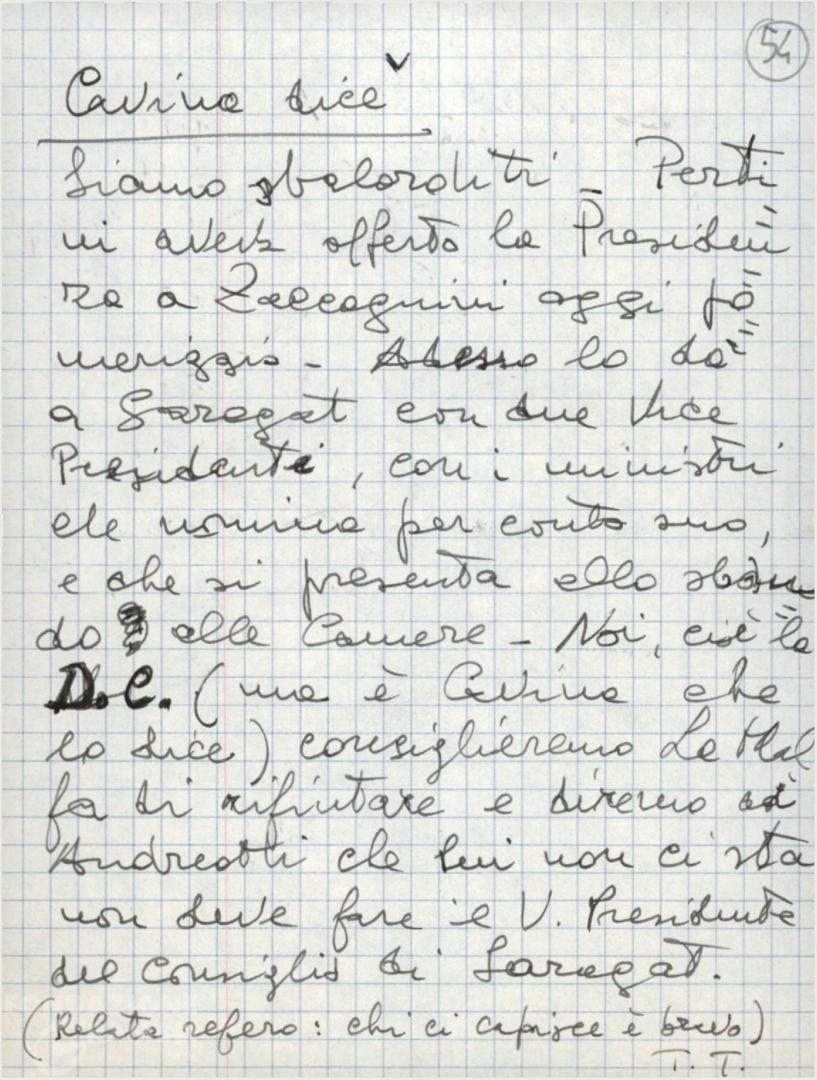 54
Cavina dice
Siamo sbalorditi - Perti
ni aveva offerto la Presiden
za a Zaccagnini oggi po
meriggio - Adesso lo dà
a Saragat con due Vice
Presidenti, con i ministri
che nomina per conto suo,
e che si presenta allo sban
do alle Camere - Noi, cioè la
D.C. (ma è Cavina che
lo dice) consiglieremo La Mal
fa di rifiutare e diremo ad
Andreotti che lui non ci sta
non deve fare il V. Presidente
del Consiglio di Saragat.
(Relata refero: chi ci capisce è bravo)
T. T.